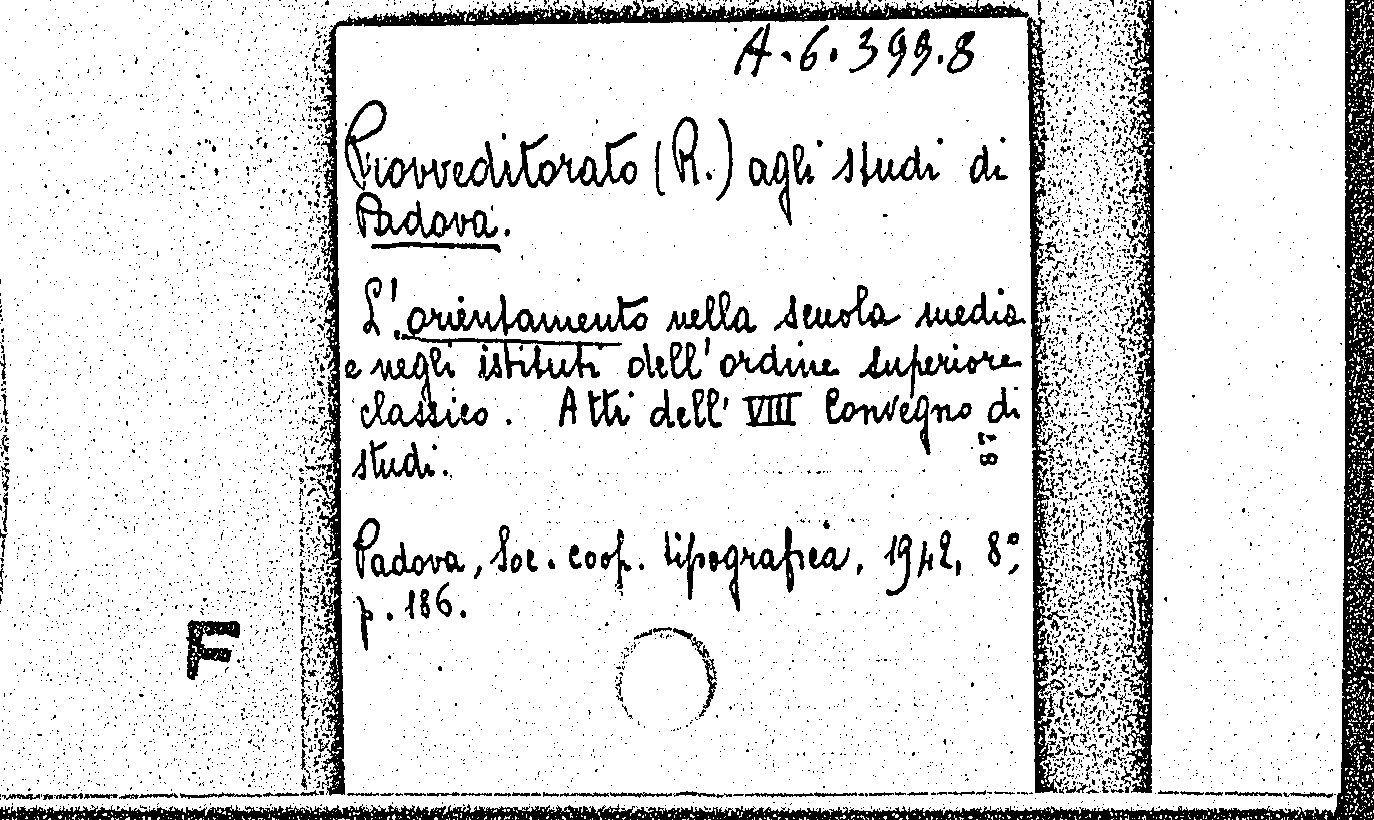 A.6.399.8
Provveditorato (R.) agli studi di
Padova.
L'orientamento nella scuola media
e negli istituti dell'ordine superiore
classico. Atti dell' VIII Convegno di
studi.
Padova, Soc. coop. tipografica, 1942, 8°,
p. 186.
F